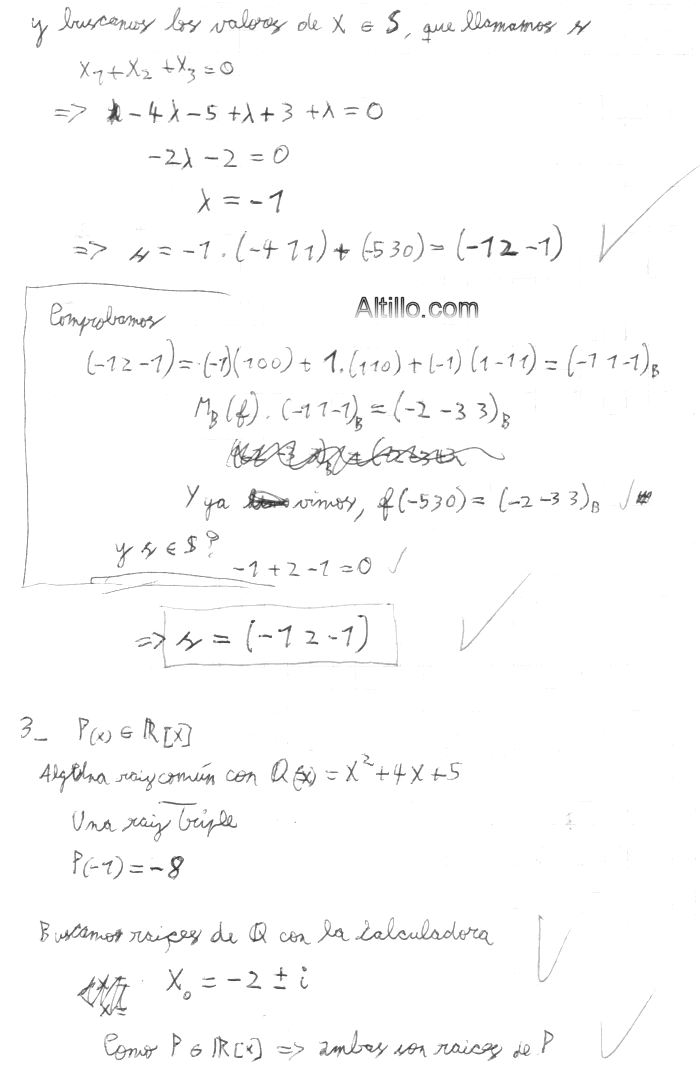 y buscamos los valores de X ∈ S, que llamamos s
X₁+X₂+X₃=0
=> -4λ-5+λ+3+λ=0
-2λ-2=0
λ=-1
=> s=-1.(-4 1 1)+(-5 3 0)=(-1 2 -1)
Altillo.com
Comprobamos
(-1 2 -1)=(-1)(1 0 0)+1.(1 1 0)+(-1)(1 -1 1)=(-1 1 -1)B
MB(f).(-1 1 -1)B=(-2 -3 3)B
Y ya vimos, f(-5 3 0)=(-2 -3 3)B ✓
y s ∈ S? -1+2-1=0 ✓
=> s=(-1 2 -1)
3_ P(x) ∈ ℝ[X]
Alguna raiz común con Q(x)=X²+4X+5
Una raiz triple
P(-1)=-8
Buscamos raices de Q con la calculadora
X₀=-2±i
Como P ∈ ℝ[x] => ambas son raices de P